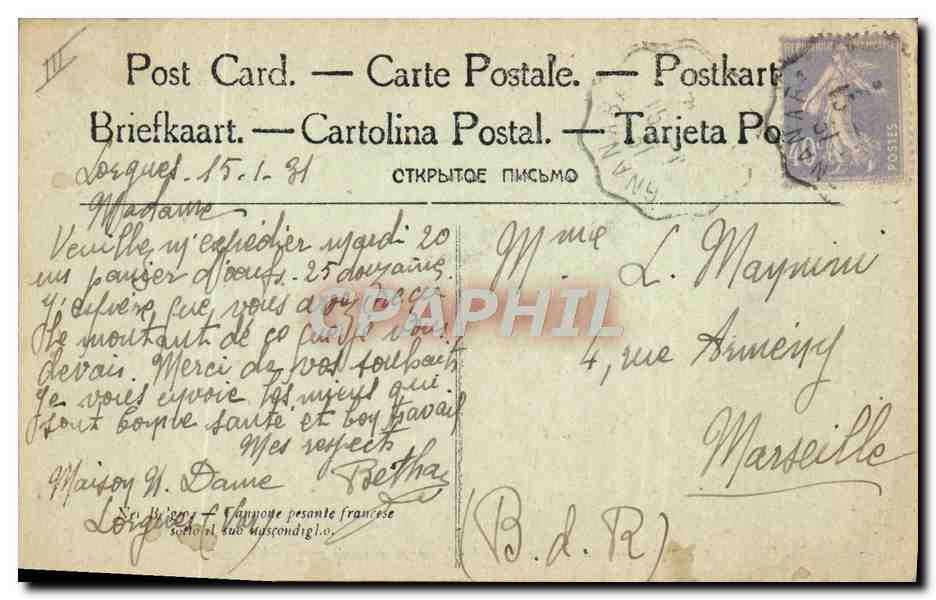 III
Post Card. — Carte Postale. — Postkart
Briefkaart. — Cartolina Postal. — Tarjeta Po
ОТКРЫТОЕ ПИСЬМО
REPUBLIQUE FRANÇAISE
POSTES
Lorgues. 15.1.31
Madame
Veuillez m'expédier mardi 20
un panier d'œufs. 25 douzaines.
J'espère que vous avez reçu
le montant de ce que je vous
devais. Merci de vos souhaits
je vous envoie les miens qui
sont bonne santé et bon travail
Mes respects
Maison N. Dame
Lorgues (Var)
Mme L. Maynini
4, rue Armény
Marseille
(B. d. R)
Cannone pesante francese
sotto il suo nascondiglio.
CPAPHIL